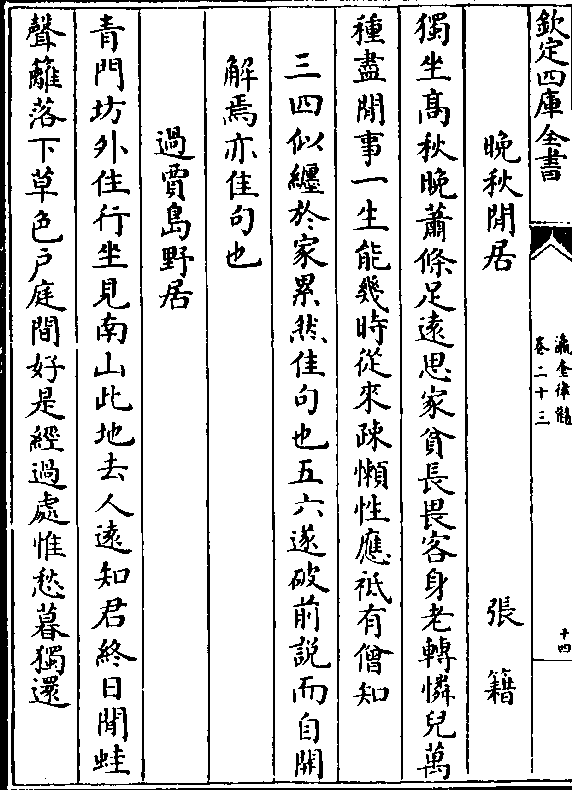 欽定四庫全書
瀛奎律髓
卷二十三
十四
晩秋閒居
張籍
獨坐髙秋晩蕭條足逺思家貧長畏客身老轉憐兒萬
種盡閒事一生能幾時從來疎懶性應祗有僧知
三四似纒於家累然佳句也五六遂破前説而自開
解焉亦佳句也
過賈島野居
青門坊外住行坐見南山此地去人逺知君終日閒蛙
聲籬落下草色户庭間好是經過處惟愁暮獨還